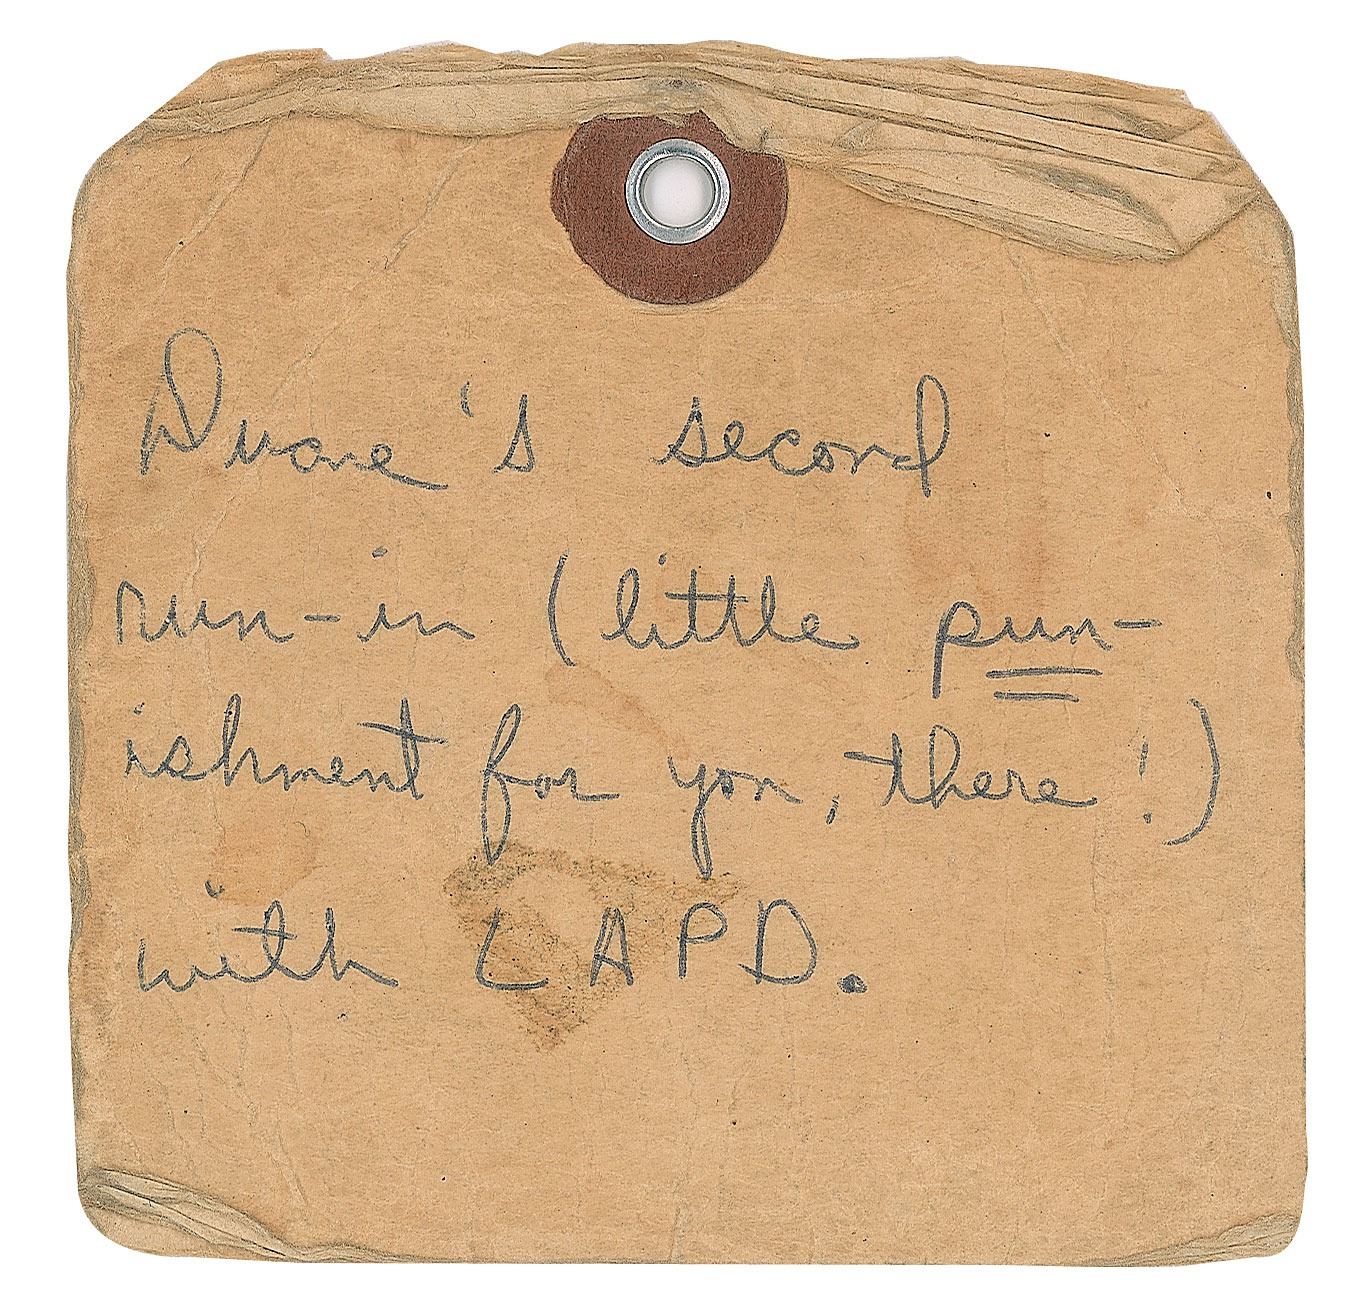 Duane's second
run-in (little pun-
ishment for you, there!)
with LAPD.